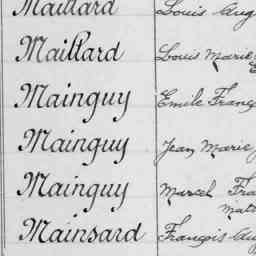 Maillard Louis Aug
Maillard Louis Marie
Mainguy Emile Franç
Mainguy Jean Marie
Mainguy Marcel Fra
Mat
Mainsard François Au